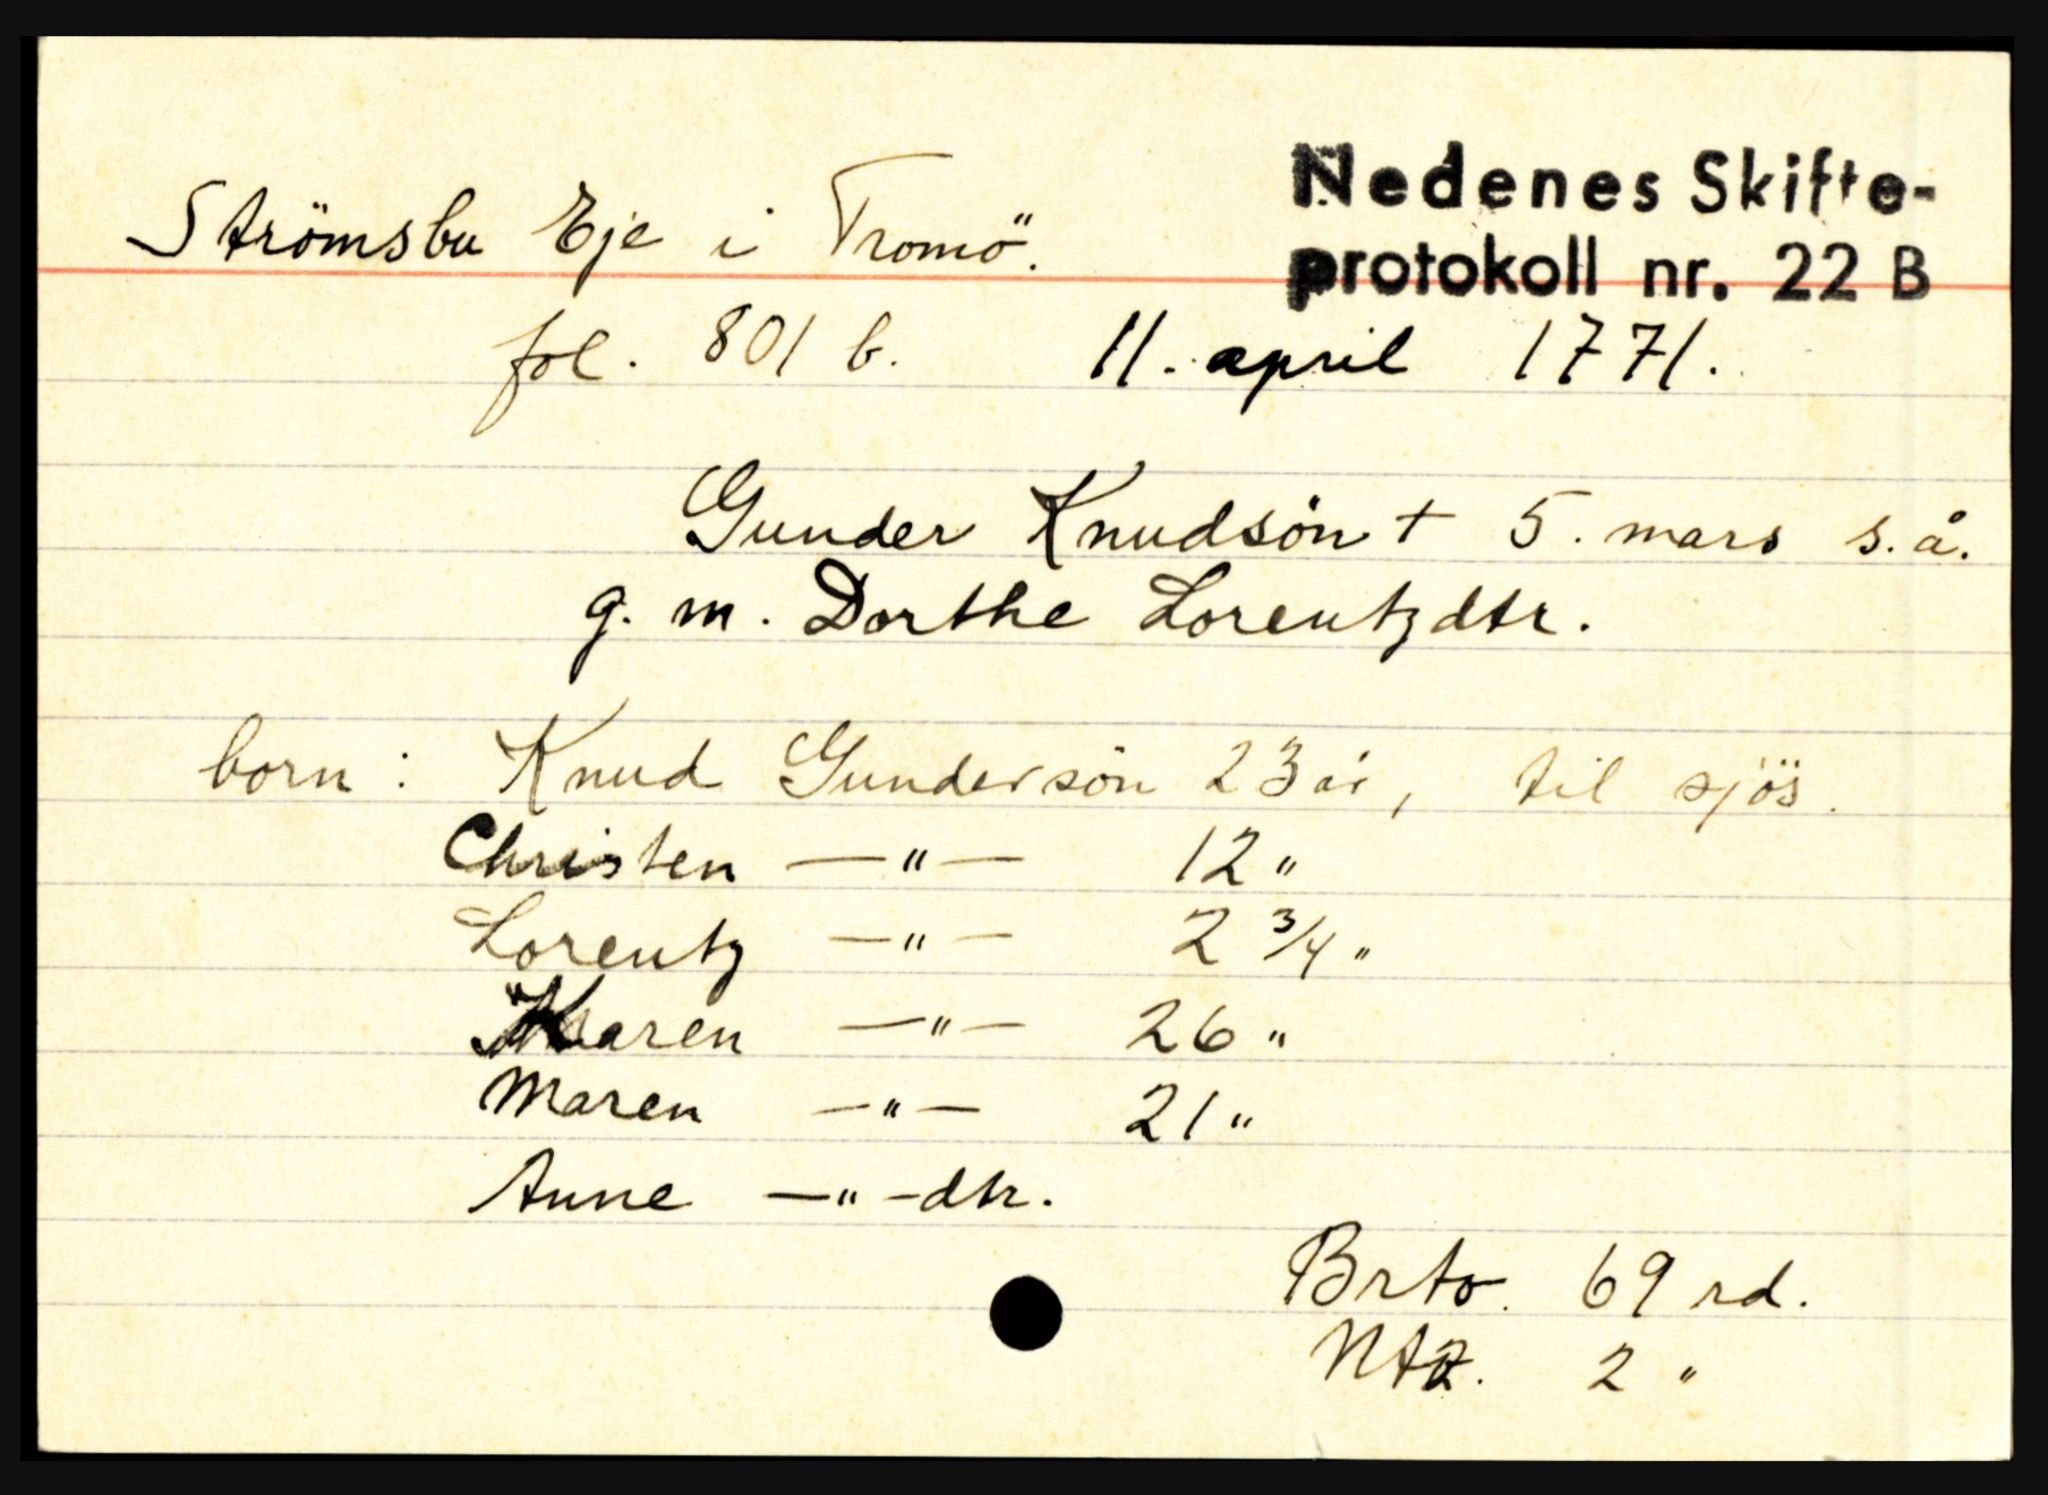 Strömsbu Eje i Tromö.
Nedenes Skifte-
protokoll nr. 22 B
fol. 801 b. 11. april 1771.
Gunder Knudsön + 5. mars s.å.
g. m. Dorthe Lorentzdtr.
born : Knud Gundersön 23 år, til sjös.
Christen —"— 12 "
Lorentz —"— 2 3/4 "
Karen —"— 26 "
Maren —"— 21 "
Anne —"—dtr.
Brto. 69 rd.
Nt. 2 "